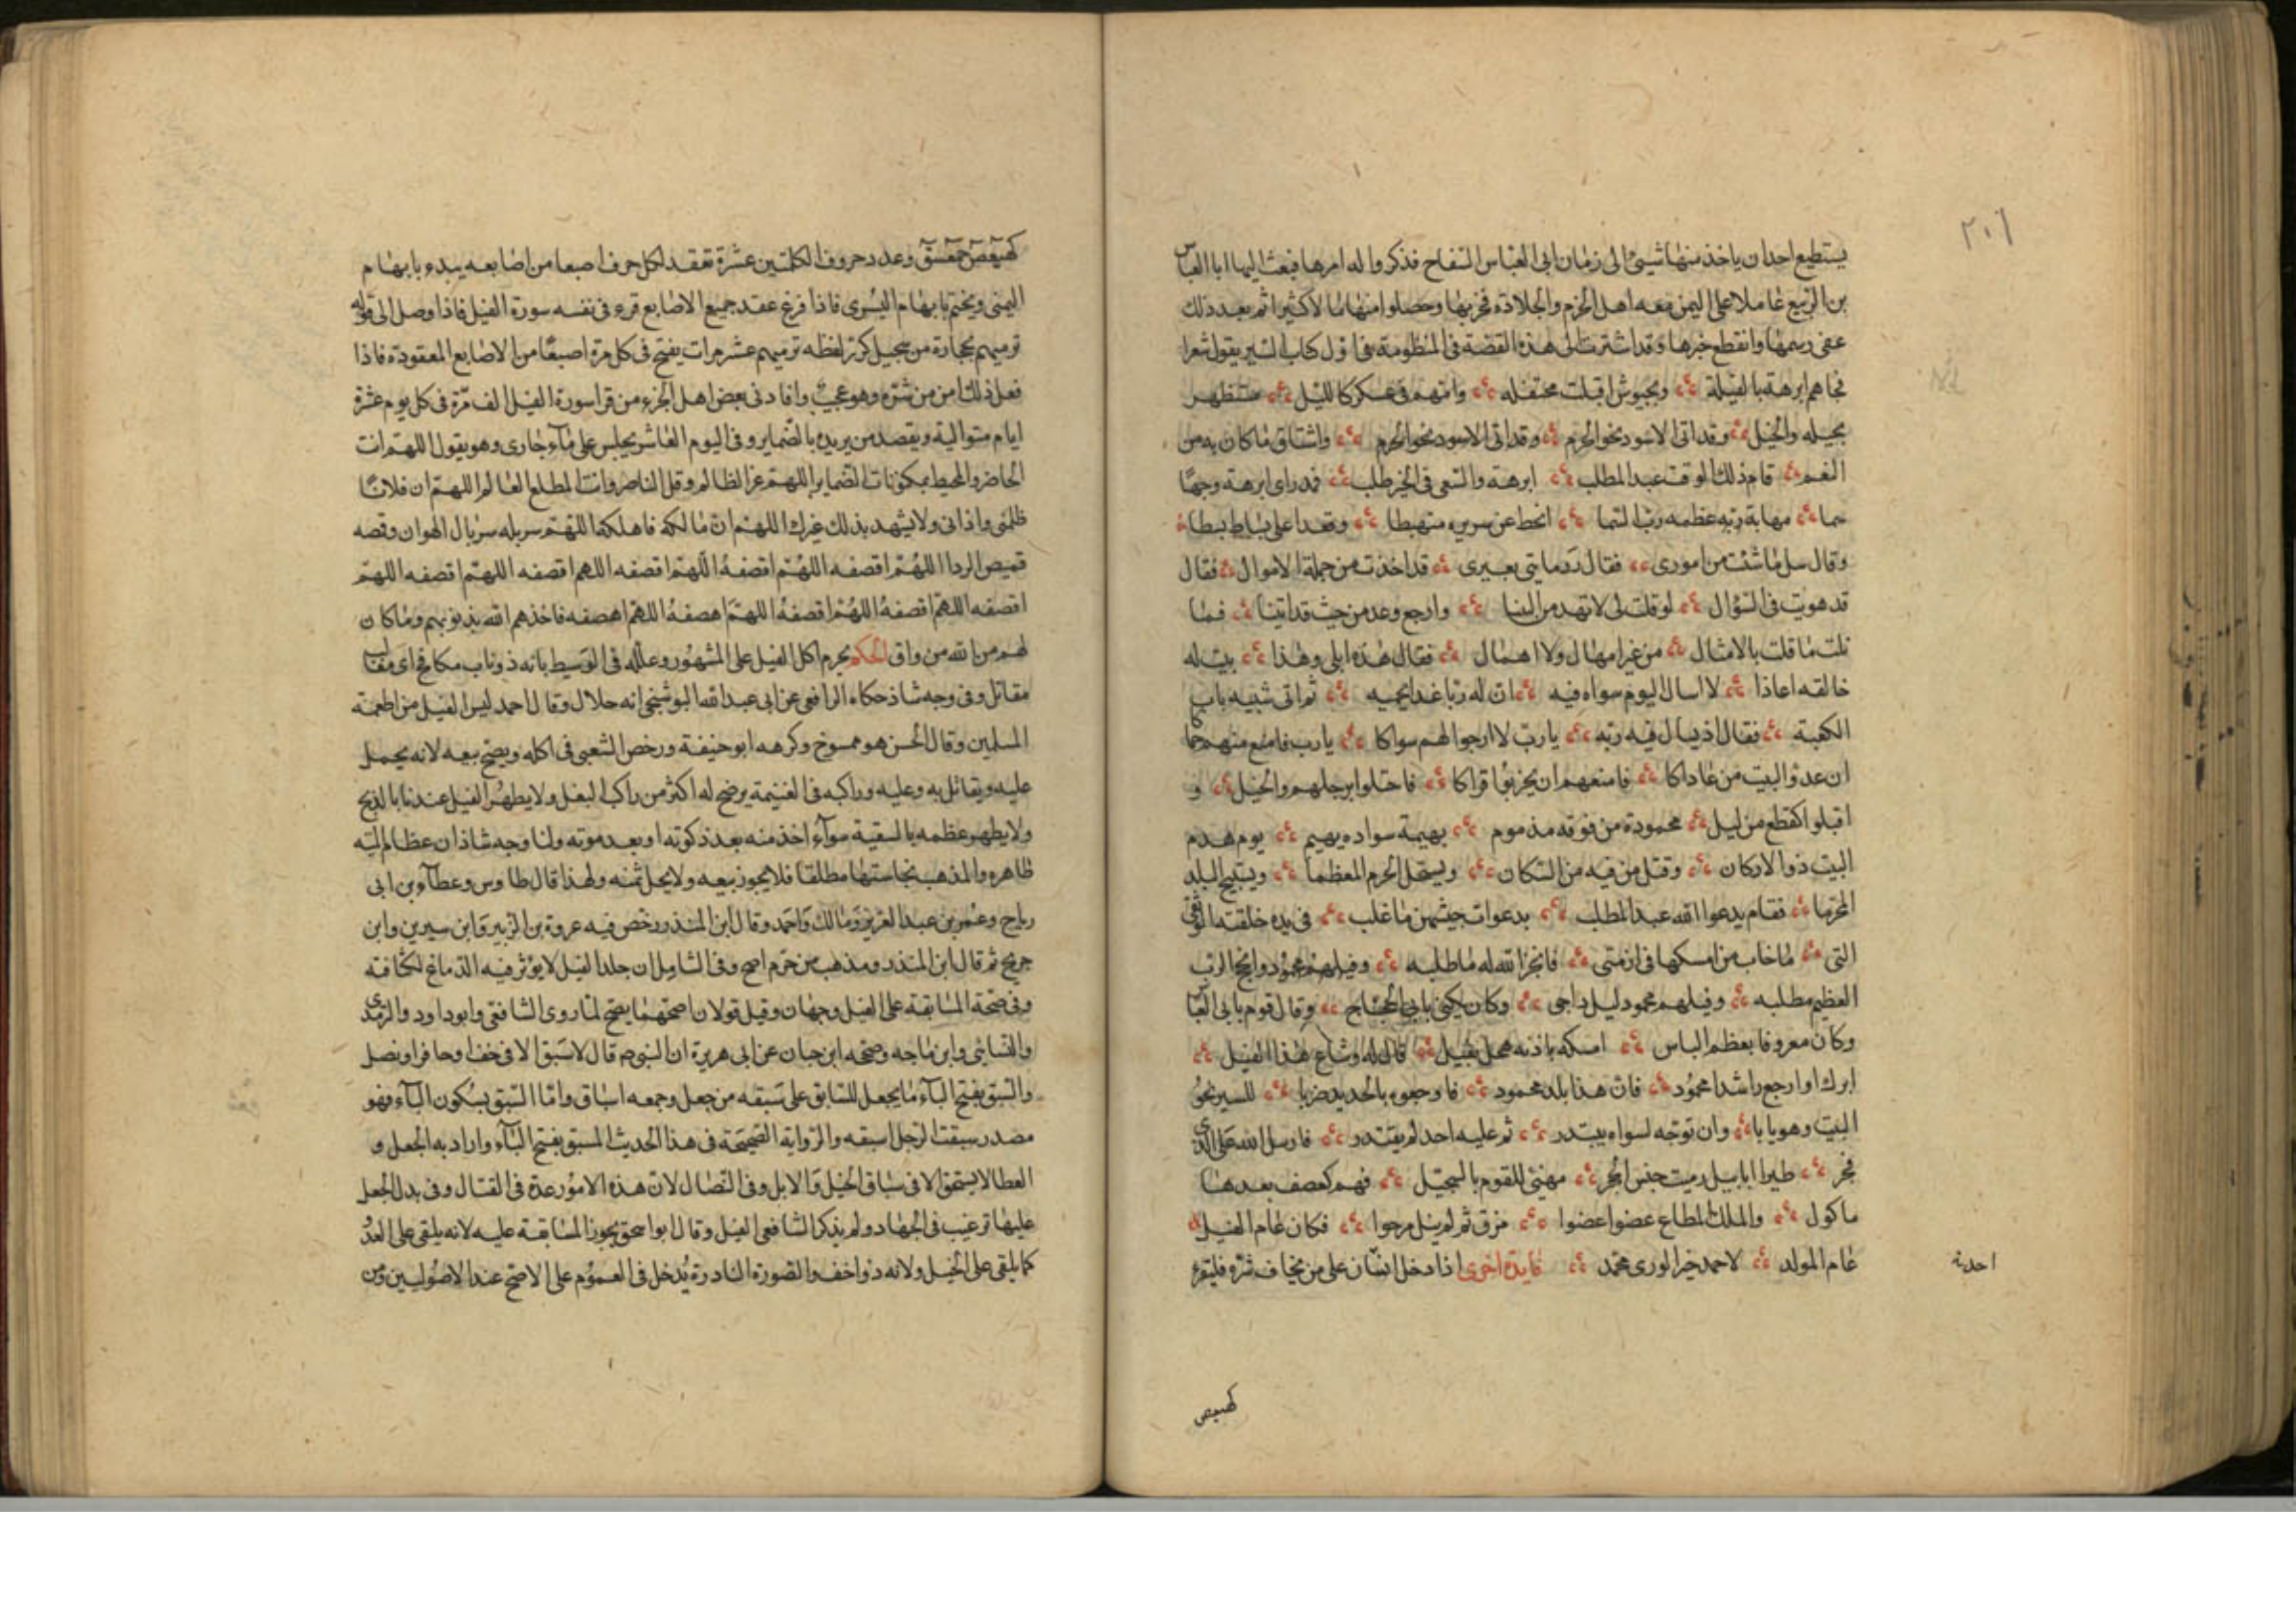 ٢٠٦
يستطيع احد ان ياخذ منها شيئ الى زمان ابى العباس السفاح فذكروا له امرها فبعث اليها ابا العباس
بن الربيع عاملا على اليمن معه اهل الحزم والجلادة فخربها وحصلوا منها مالا كثيرا ثم بعد ذلك
عفى رسمها وانقطع خبرها وقد اشرت الى هذه القصة فى المنظومة فى اول كتاب السير بقول شعرا
فجاهم ابرهة بالفيلة وبجيوش اقبلت محتفله وامتهم فى عسكر كالليل مستظهر
بخيله والخيل وقد اتى الاسود نحو الحرم وقد اتى الاسود نحو الحرم واشتاق ما كان به من
النعم قام ذلك الوقت عبد المطلب ابرهة والسعى فى الخير طلب فمد راى ابرهة وجها
سما مهابة ربه عظمه رب السما انحط عن سريره منهبطا وقعدا على بساط بسطا
وقال سل ما شئت من امورى فقال رد مايتى بعيرى قد اخذت من جملة الاموال فقال
قد هويت فى السؤال لو قلت لى لا تهد من البنا وارجع وعد من حيث قد اتينا فما
نلت ما قلت بالامثال من غير امهال ولا اهمال فقال هذه ابلى وهذا بيت له
خالقه اعاذا لا اسال اليوم سواه فيه ان له ربا غدا يحميه ثم اتى شيبه باب
الكعبة فقال اذ يسال فيه ربه يا رب لا ارجوا لهم سواكا يا رب فامنع منهم حماكا
ان عدو البيت من عاداكا فامنعهم ان يخربوا قراكا فاحتلوا برجلهم والخيل و
اقبلوا كقطع من ليل محمودة من فوقه مذموم بهيمة سواده بهيم يوم هدم
البيت ذو الاركان وقتل من فيه من السكان ويستحل الحرم المعظما ويستبيح البلد
المحرما فقام يدعوا الله عبد المطلب بدعوات جيشهن ما غلب فى يده خلقته الوثقى
التى ما خاب من امسكها فى ازمتى فانجز الله له ما طلبه وفيلهم محمود وانجح الرب
العظيم مطلبه وفيلهم محمود ليل داجى وكان يكنى بابى الحجاج وقال قوم بابى العباس
وكان معروفا بعظم الباس امسكه باذنه نفيل قال له وشاع هذا الفيل
ابرك او ارجع راشدا محمود فان هذا بلد محمود فاوجعوه بالحديد ضربا للسير نحو
البيت وهو يابا وان توجه لسواه يبتدر ثم عليه احد لم يقتدر فارسل الله على الذى
فجر طيرا ابابيل رميت جنس الحجر مهنئ للقوم بالسجيل فهم كعصف بعدها
ماكول والملك المطاع عضوا عضوا مزق ثم لم ينل مرجوا فكان عام الفيل
عام المولد لاحمد خير الورى محمد فايدة اخرى اذا دخل انسان على من يخاف شره فليقرء
احدية
كهيعص
كهيعص حمعسق وعدد حروف الكلمتين عشرة تعقد لكل حرف اصبعا من اصابعه يبدء بابهام
اليمنى ويختم بابهام اليسرى فاذا فرغ عقد جميع الاصابع قرء فى نفسه سورة الفيل فاذا وصل الى قوله
ترميهم بحجارة من سجيل كرر لفظه ترميهم عشر مرات يفتح فى كل مرة اصبعا من الاصابع المعقودة فاذا
فعل ذلك امن من شره وهو عجيب وافادنى بعض اهل الخير من قرا سورة الفيل الف مرة فى كل يوم عشرة
ايام متوالية ويقصد من يريده بالضماير وفى اليوم العاشر يجلس على مآء جارى وهو يقول اللهم انت
الحاضر والمحيط بمكنونات الضماير اللهم عز الظالم وقل الناصر وانت المطلع العالم اللهم ان فلانا
ظلمنى واذانى ولا يشهد بذلك غيرك اللهم ان مالكه فاهلكه اللهم سربله سربال الهوان وقمصه
قميص الردا اللهم اقصفه اللهم اقصفه اللهم اقصفه اللهم اقصفه اللهم اقصفه اللهم
اقصفه اللهم اقصفه اللهم اقصفه اللهم اهصفه اللهم اهصفه فاخذهم الله بذنوبهم وما كان
لهم من الله من واق الحكم يحرم اكل الفيل على المشهور وعلله فى الوسيط بانه ذو ناب مكافح اى مغالب
مقاتل وفى وجه شاذ حكاه الرافعى عن ابى عبد الله البوشنجى انه حلال وقال احمد ليس الفيل من اطعمة
المسلمين وقال الحسن هو ممسوخ وكرهه ابو حنيفة ورخص الشعبى فى اكله ويصح بيعه لانه يحمل
عليه ويقاتل به وعليه وراكبه فى الغنيمة يرضخ له اكثر من راكب البغل ولا يطهر الفيل عندنا بالذبح
ولا يطهر عظمه بالسقية سوآء اخذ منه بعد ذكوته او بعد موته ولنا وجه شاذ ان عظام الميته
ظاهره والمذهب نجاستها مطلقا فلا يجوز بيعه ولا يحل ثمنه ولهذا قال طاوس وعطآء بن ابى
رباح وعمر بن عبد العزيز ومالك واحمد وقال ابن المنذر رخص فيه عروة بن الزبير وابن سيرين وابن
جريج ثم قال ابن المنذر ومذهب من حرم اصح وفى الشامل ان جلد الفيل لا يؤثر فيه الدباغ لكثافته
وفى صحة المسابقة على الفيل وجهان وقيل قولان اصحهما يصح لما روى الشافعى وابو داود والترمذى
والنسائى وابن ماجه وصححه ابن حبان عن ابى هريرة ان النبى م قال لا سبق الا فى خف او حافر او نصل
والسبق بفتح البآء ما يجعل للسابق على سبقه من جعل وجمعه اسباق واما السبق بسكون البآء فهو
مصدر سبقت الرجل اسبقه والرواية الصحيحة فى هذا الحديث السبق بفتح البآء واراد به الجعل و
العطا لا يستحق الا فى سباق الخيل والابل وفى النضال لان هذه الامور عدة فى القتال وفى بدل الجعل
عليها ترغيب فى الجهاد ولم يذكر الشافعى الفيل وقال ابو اسحق يجوز المسابقة عليه لانه يلقى على العدو
كما يلقى على الخيل ولانه ذو اخف والصورة النادرة تدخل فى العموم على الاصح عند الاصوليين ومن